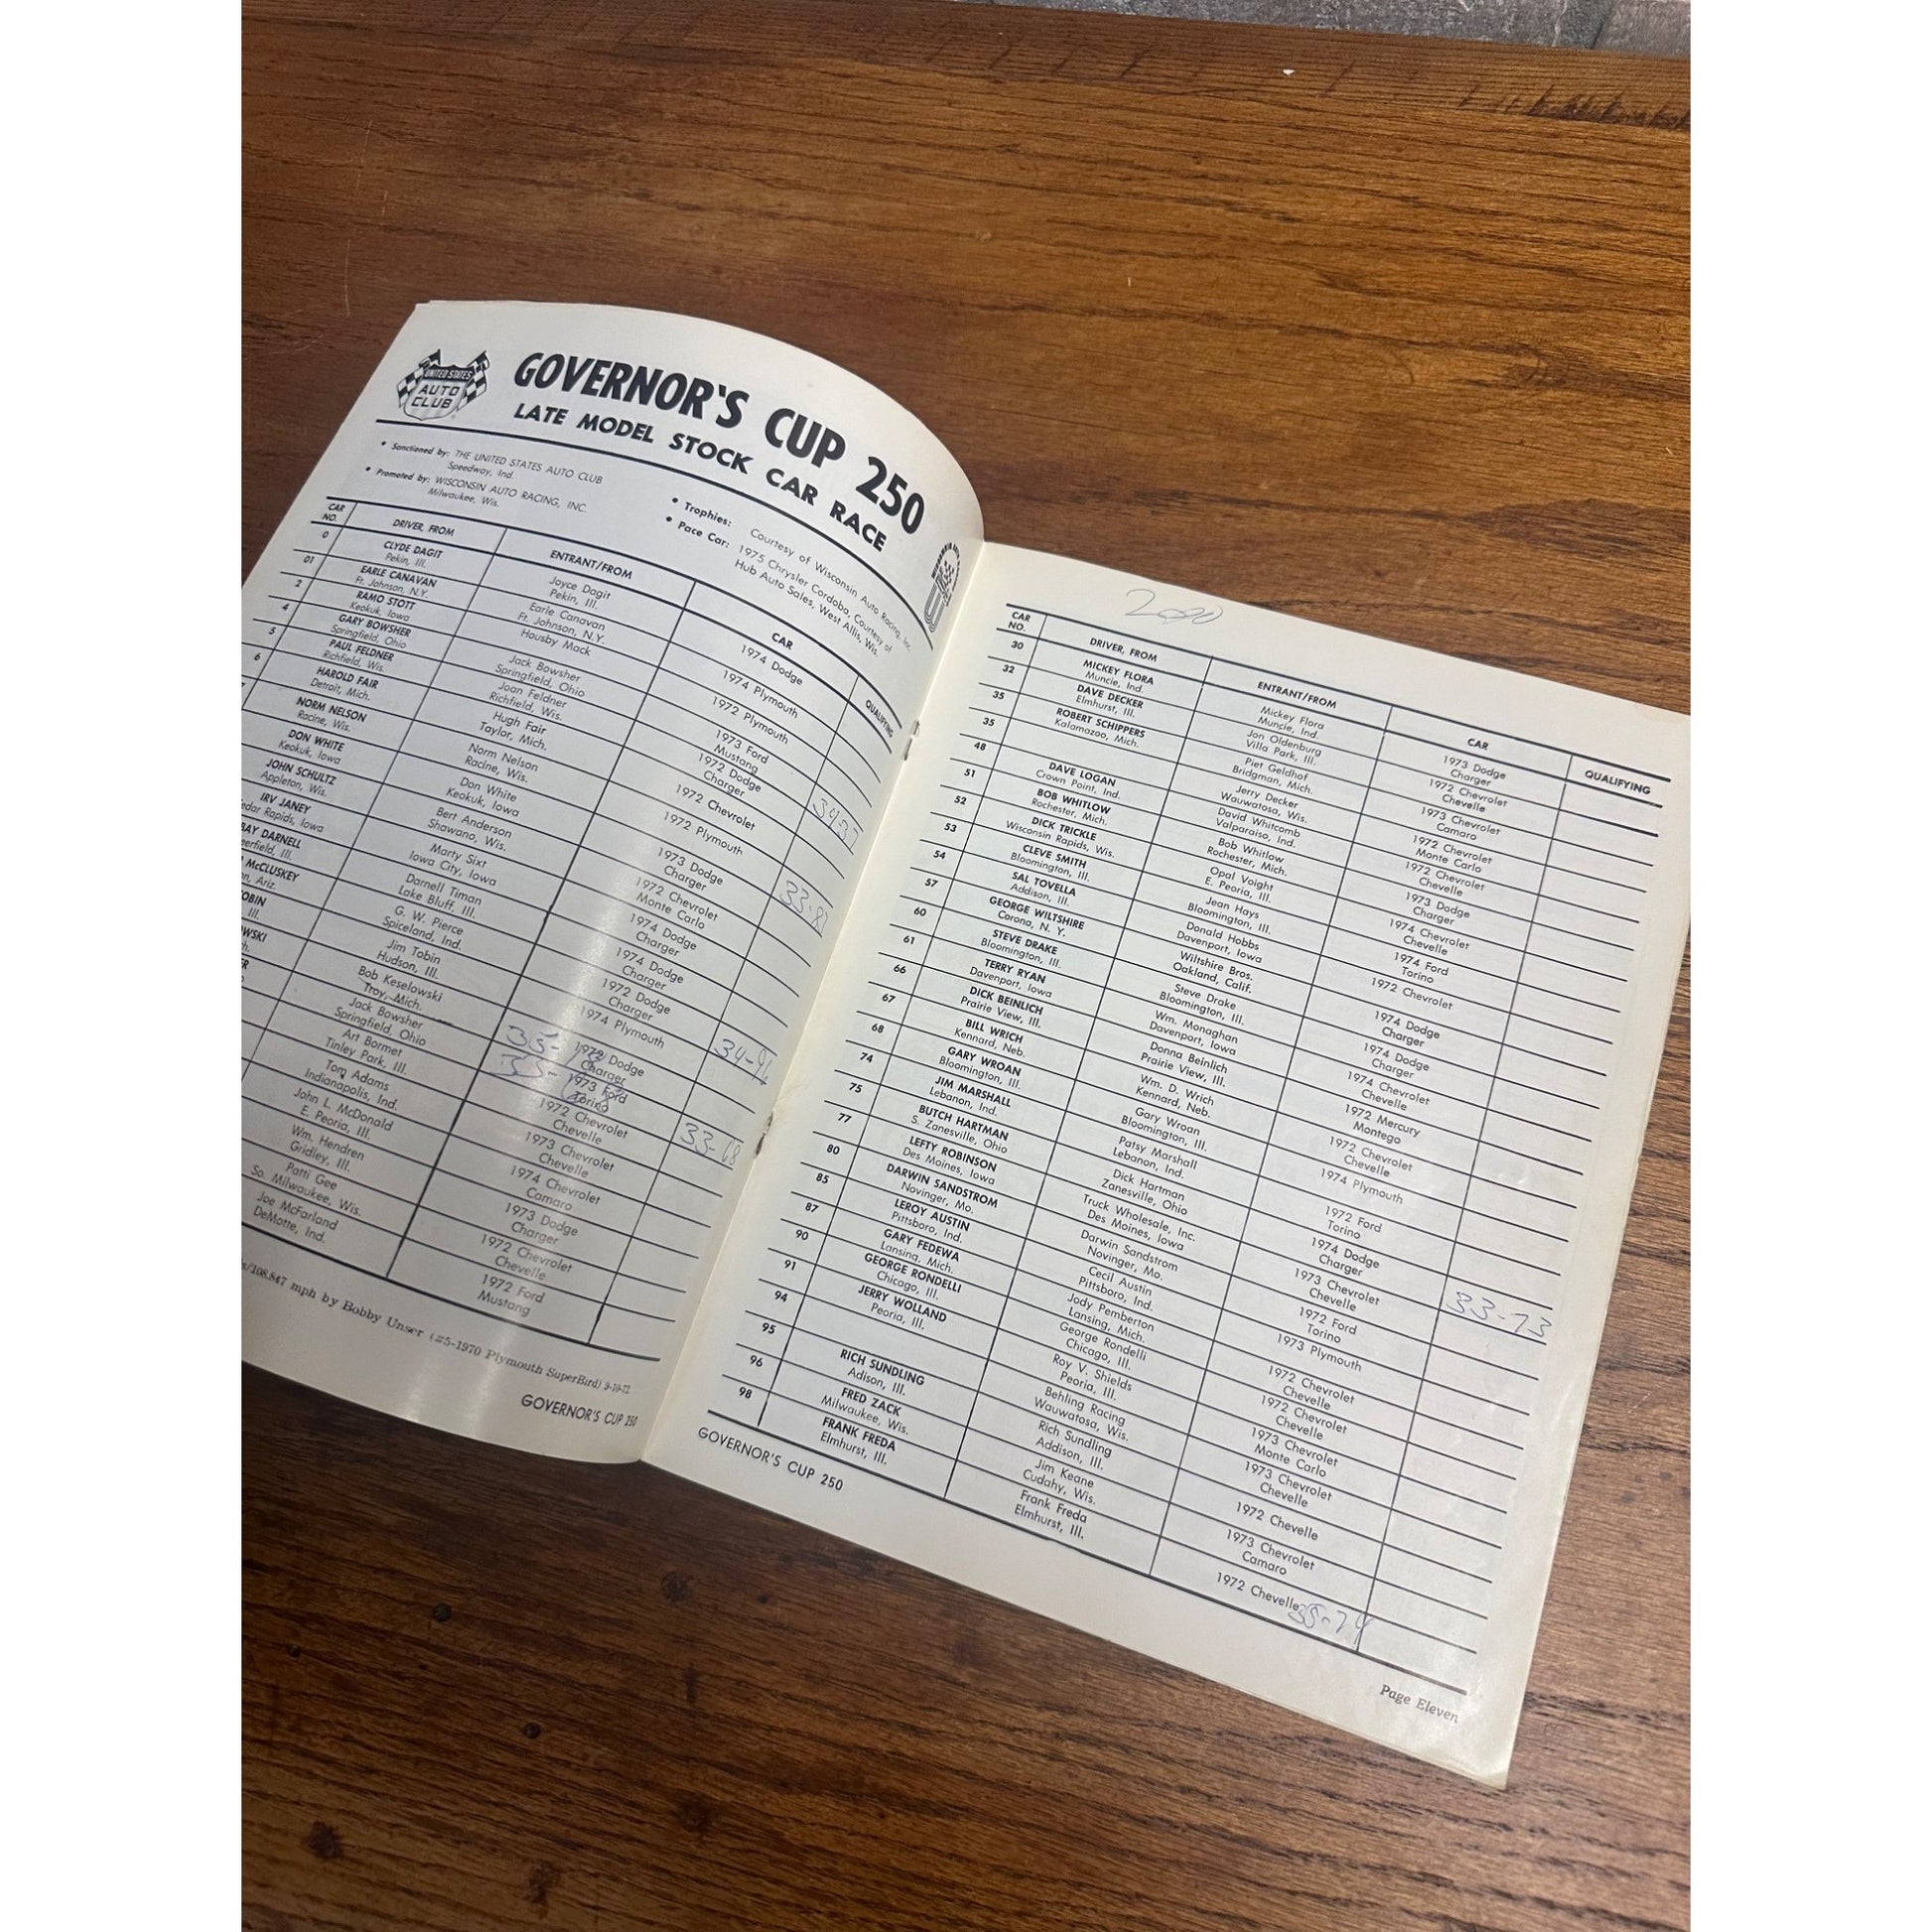 UNITED STATES
AUTO
CLUB
GOVERNOR'S CUP 250
LATE MODEL STOCK CAR RACE
• Sanctioned by: THE UNITED STATES AUTO CLUB
Speedway, Ind.
• Promoted by: WISCONSIN AUTO RACING, INC.
Milwaukee, Wis.
• Trophies: Courtesy of Wisconsin Auto Racing, Inc.
• Pace Car: 1975 Chrysler Cordoba, Courtesy of
Hub Auto Sales, West Allis, Wis.
CAR NO. DRIVER, FROM ENTRANT/FROM CAR QUALIFYING
0 CLYDE DAGIT Joyce Dagit 1974 Dodge
Pekin, Ill. Pekin, Ill.
01 EARLE CANAVAN Earle Canavan 1974 Plymouth
Ft. Johnson, N.Y. Ft. Johnson, N.Y.
2 RAMO STOTT Housby Mack 1972 Plymouth
Keokuk, Iowa
4 GARY BOWSHER Jack Bowsher 1973 Ford
Springfield, Ohio Springfield, Ohio Mustang
5 PAUL FELDNER Joan Feldner 1972 Dodge
Richfield, Wis. Richfield, Wis. Charger
6 HAROLD FAIR Hugh Fair 1972 Chevrolet
Detroit, Mich. Taylor, Mich.
NORM NELSON Norm Nelson 1972 Plymouth
Racine, Wis. Racine, Wis.
DON WHITE Don White 1973 Dodge
Keokuk, Iowa Keokuk, Iowa Charger
JOHN SCHULTZ Bert Anderson 1972 Chevrolet
Appleton, Wis. Shawano, Wis. Monte Carlo
IRV JANEY Marty Sixt 1974 Dodge
Rapids, Iowa Iowa City, Iowa Charger
BAY DARNELL Darnell Timan 1974 Dodge
Lake Bluff, Ill. Charger
McCLUSKEY G. W. Pierce 1972 Dodge
Ariz. Spiceland, Ind. Charger
Jim Tobin 1974 Plymouth 34-96
Ill. Hudson, Ill.
Bob Keselowski 1972 Dodge
Troy, Mich. Charger
Jack Bowsher 1973 Ford
Springfield, Ohio Torino
Art Bormet 1972 Chevrolet 33-68
Tinley Park, Ill. Chevelle
Tom Adams 1973 Chevrolet
Indianapolis, Ind. Chevelle
John L. McDonald 1974 Chevrolet
E. Peoria, Ill. Camaro
Wm. Hendren 1973 Dodge
Gridley, Ill. Charger
Patti Gee 1972 Chevrolet
So. Milwaukee, Wis. Chevelle
Joe McFarland 1972 Ford
DeMotte, Ind. Mustang
/108.847 mph by Bobby Unser (#5-1970 Plymouth SuperBird) 9-10-72
GOVERNOR'S CUP 250
CAR NO. DRIVER, FROM ENTRANT/FROM CAR QUALIFYING
30 MICKEY FLORA Mickey Flora 1973 Dodge
Muncie, Ind. Muncie, Ind. Charger
32 DAVE DECKER Jon Oldenburg 1972 Chevrolet
Elmhurst, Ill. Villa Park, Ill. Chevelle
35 ROBERT SCHIPPERS Piet Geldhof 1973 Chevrolet
Kalamazoo, Mich. Bridgman, Mich. Camaro
35 Jerry Decker 1972 Chevrolet
Wauwatosa, Wis. Monte Carlo
48 DAVE LOGAN David Whitcomb 1972 Chevrolet
Crown Point, Ind. Valparaiso, Ind. Chevelle
51 BOB WHITLOW Bob Whitlow 1973 Dodge
Rochester, Mich. Rochester, Mich. Charger
52 DICK TRICKLE Opal Voight 1974 Chevrolet
Wisconsin Rapids, Wis. E. Peoria, Ill. Chevelle
53 CLEVE SMITH Jean Hays 1974 Ford
Bloomington, Ill. Bloomington, Ill. Torino
54 SAL TOVELLA Donald Hobbs 1972 Chevrolet
Addison, Ill. Davenport, Iowa
57 GEORGE WILTSHIRE Wiltshire Bros. 1974 Dodge
Corona, N. Y. Oakland, Calif. Charger
60 STEVE DRAKE Steve Drake 1974 Dodge
Bloomington, Ill. Bloomington, Ill. Charger
61 TERRY RYAN Wm. Monaghan 1974 Chevrolet
Davenport, Iowa Davenport, Iowa Chevelle
66 DICK BEINLICH Donna Beinlich 1972 Mercury
Prairie View, Ill. Prairie View, Ill. Montego
67 BILL WRICH Wm. D. Wrich 1972 Chevrolet
Kennard, Neb. Kennard, Neb. Chevelle
68 GARY WROAN Gary Wroan 1974 Plymouth
Bloomington, Ill. Bloomington, Ill.
74 JIM MARSHALL Patsy Marshall 1972 Ford
Lebanon, Ind. Lebanon, Ind. Torino
75 BUTCH HARTMAN Dick Hartman 1974 Dodge 33-73
S. Zanesville, Ohio Zanesville, Ohio Charger
77 LEFTY ROBINSON Truck Wholesale, Inc. 1973 Chevrolet
Des Moines, Iowa Des Moines, Iowa Chevelle
80 DARWIN SANDSTROM Darwin Sandstrom 1972 Ford
Novinger, Mo. Novinger, Mo. Torino
85 LEROY AUSTIN Cecil Austin 1973 Plymouth
Pittsboro, Ind. Pittsboro, Ind.
87 GARY FEDEWA Jody Pemberton 1972 Chevrolet
Lansing, Mich. Lansing, Mich. Chevelle
90 GEORGE RONDELLI George Rondelli 1972 Chevrolet
Chicago, Ill. Chicago, Ill. Chevelle
91 JERRY WOLLAND Roy V. Shields 1973 Chevrolet
Peoria, Ill. Peoria, Ill. Monte Carlo
94 Behling Racing 1973 Chevrolet
Wauwatosa, Wis. Chevelle
95 RICH SUNDLING Rich Sundling 1972 Chevelle
Adison, Ill. Addison, Ill.
96 FRED ZACK Jim Keane 1973 Chevrolet
Milwaukee, Wis. Cudahy, Wis. Camaro
98 FRANK FREDA Frank Freda 1972 Chevelle 35-74
Elmhurst, Ill. Elmhurst, Ill.
GOVERNOR'S CUP 250
Page Eleven